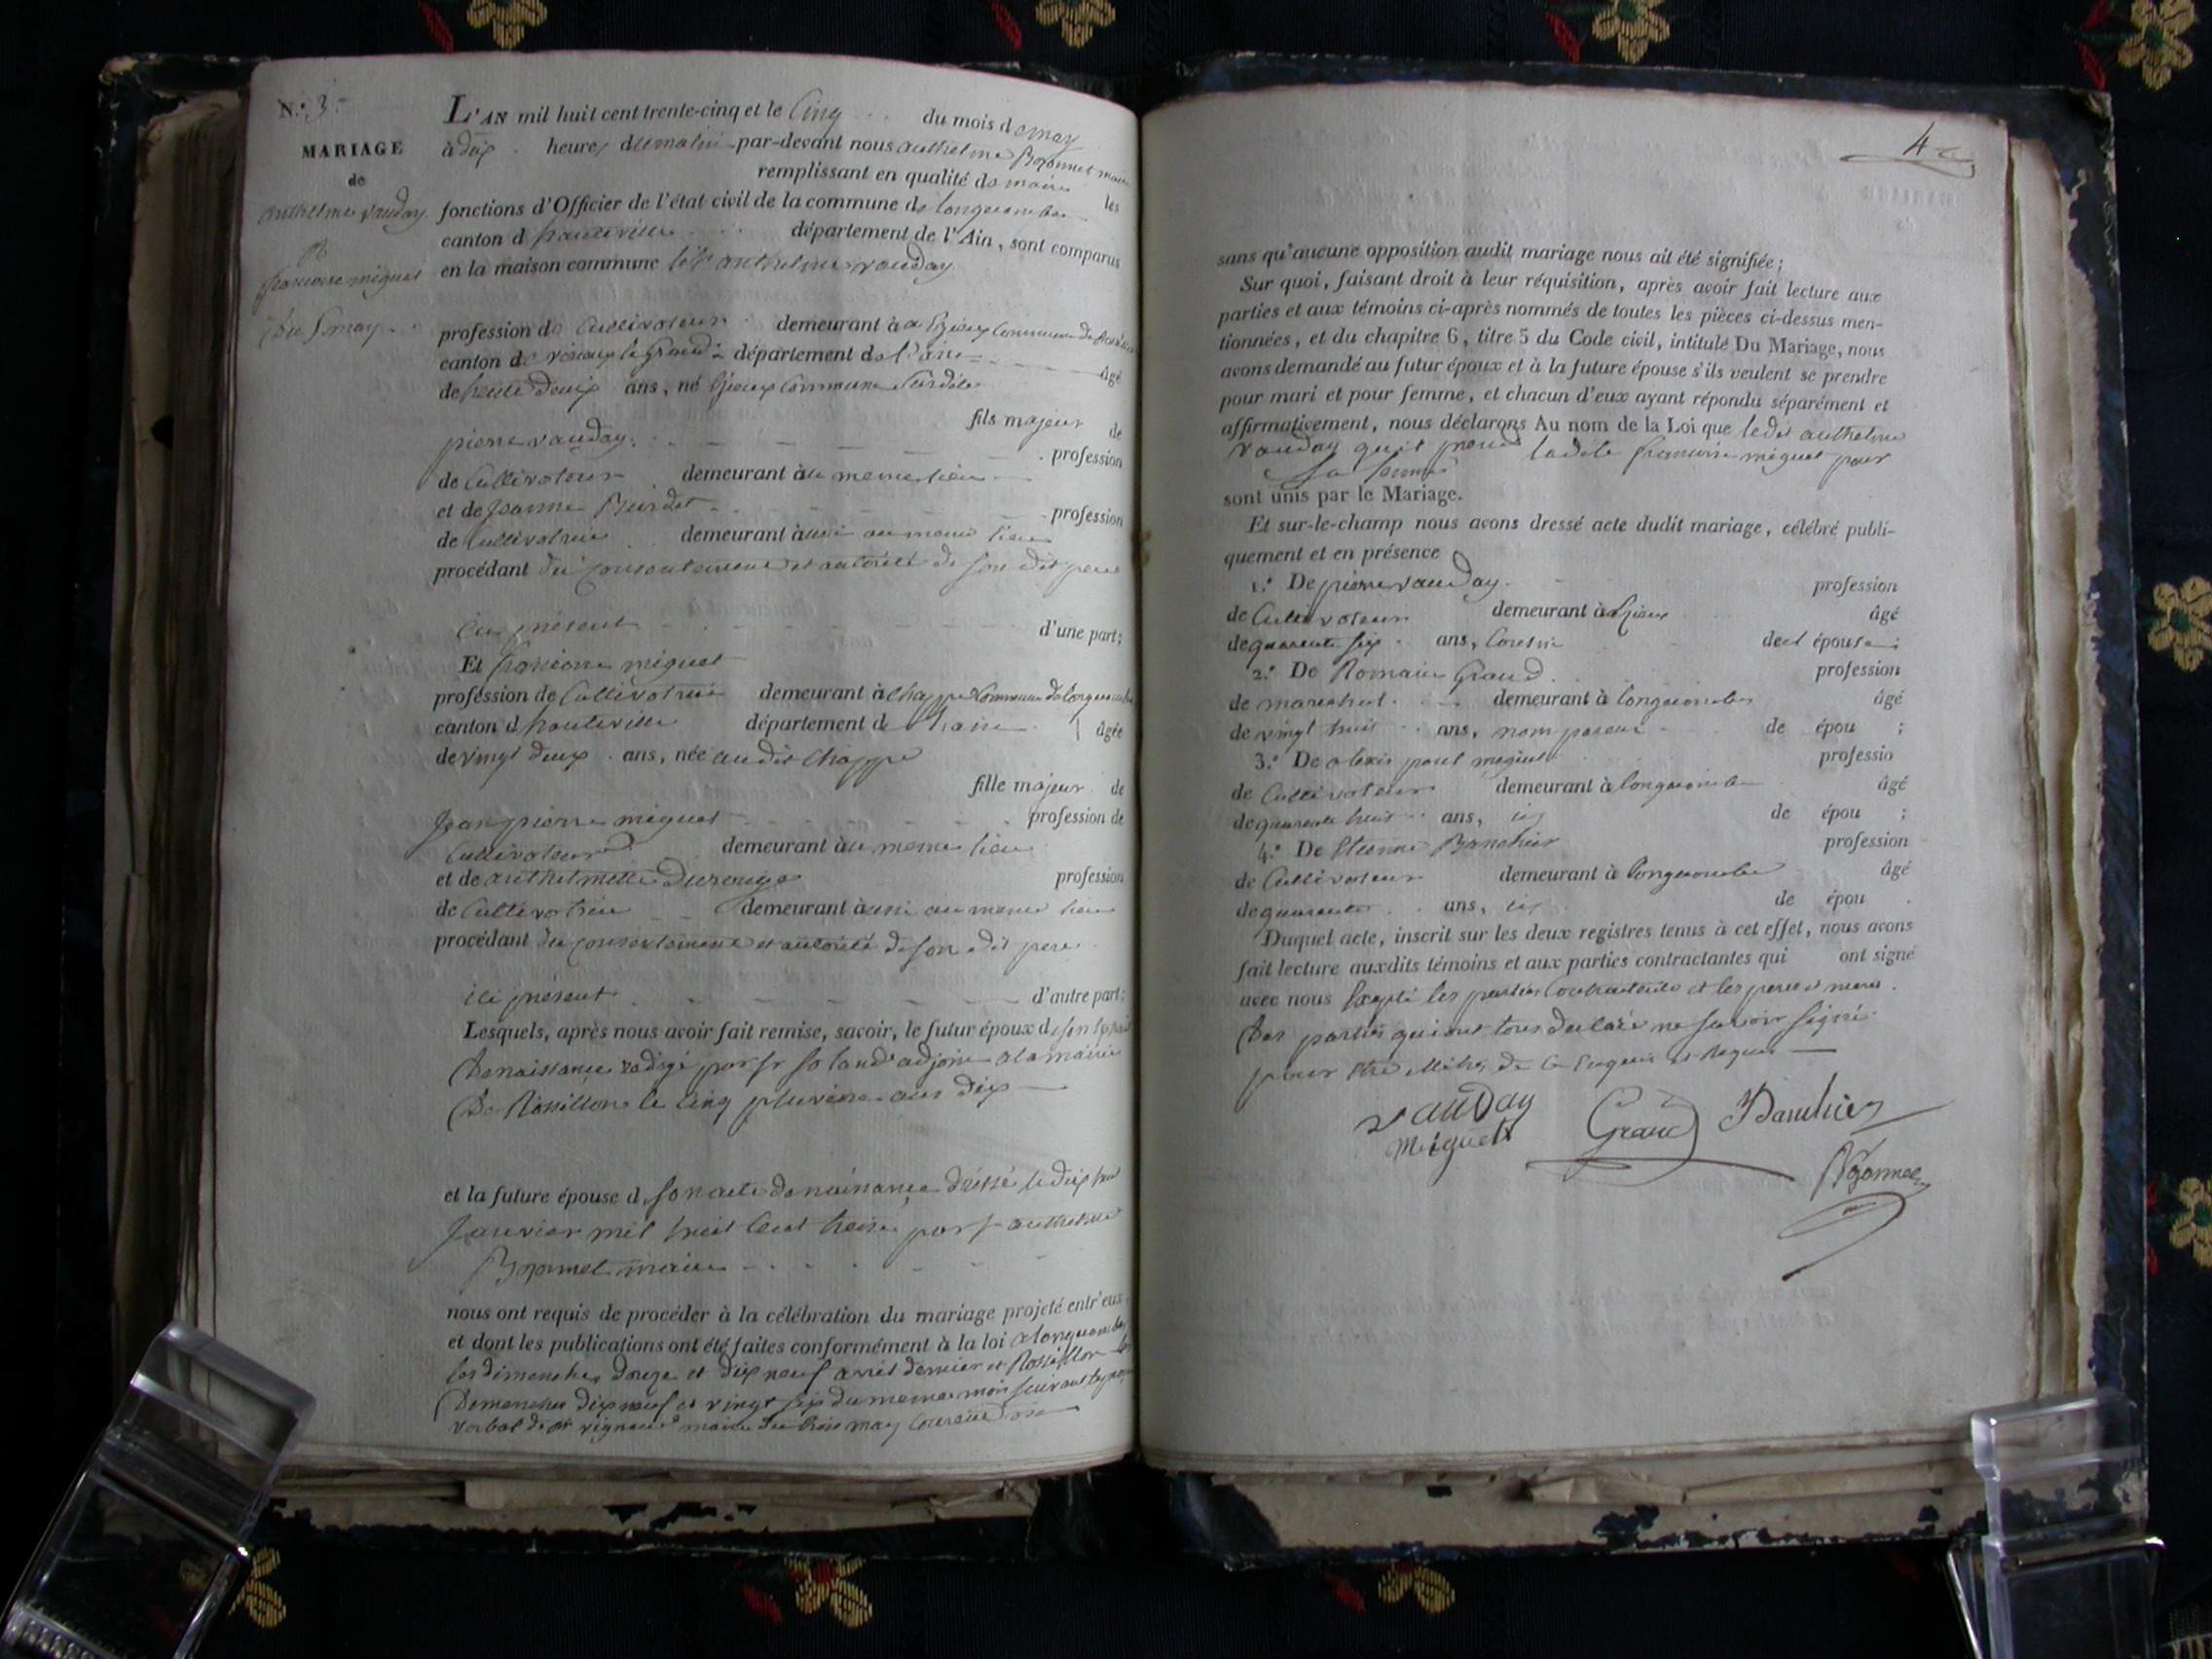 N.° 3.
MARIAGE
de
anthelme vauday
et
francoise miguet
Du 5 may
L'AN mil huit cent trente-cinq et le Cinq du mois de may
à dix heures du matin par-devant nous anthelme Bozonnet maire
remplissant en qualité de maire les
fonctions d'Officier de l'état civil de la commune de longecombe
canton d hauteville département de l'Ain, sont comparus
en la maison commune le sr anthelme vauday
profession de Cultivateur demeurant à Commune de
canton de virieux le Grand département de l'ain âgé
de trente deux ans, né Commune
fils majeur de
pierre vauday profession
de Cultivateur demeurant au meme lieu
et de Jeanne profession
de Cultivatrice demeurant à aussi au meme lieu
procédant du consentement et autorité de son dit pere
ici présent d'une part;
Et francoise miguet
profession de Cultivatrice demeurant à Chappe Commune de longecombe
canton d hauteville département de l'ain âgée
de vingt deux ans, née audit Chappe
fille majeur de
Jean pierre miguet profession de
Cultivateur demeurant au meme lieu
et de anthelmette profession
de Cultivatrice demeurant à aussi au meme lieu
procédant du consentement et autorité de son dit pere
ici présent d'autre part;
Lesquels, après nous avoir fait remise, savoir, le futur époux de son
De naissance redigé par sr adjoint a la mairie
De Rossillon le Cinq pluviose ans dix
et la future épouse d son acte de naissance dressé le dix huit
Janvier mil huit Cent treize par sr anthelme
Bozonnet maire
nous ont requis de procéder à la célébration du mariage projeté entr'eux
et dont les publications ont été faites conformément à la loi a longecombe
les dimanches douze et dix neuf avril dernier et Rossillon les
Dimanches dix neuf et vingt six du meme mois suivant le
verbal de mr maire du trois may
4
sans qu'aucune opposition audit mariage nous ait été signifiée;
Sur quoi, faisant droit à leur réquisition, après avoir fait lecture aux
parties et aux témoins ci-après nommés de toutes les pièces ci-dessus men-
tionnées, et du chapitre 6, titre 5 du Code civil, intitulé Du Mariage, nous
avons demandé au futur époux et à la future épouse s'ils veulent se prendre
pour mari et pour femme, et chacun d'eux ayant répondu séparément et
affirmativement, nous déclarons Au nom de la Loi que ledit anthelme
vauday quil prend ladite francoise miguet pour
Sa femme
sont unis par le Mariage.
Et sur-le-champ nous avons dressé acte dudit mariage, célébré publi-
quement et en présence
1.° De pierre vauday profession
de Cultivateur demeurant à âgé
de quarante six ans, Cousin de l épouse;
2.° De Romain Graud profession
de marechal demeurant à longecombe âgé
de vingt huit ans, nom parent de épou ;
3.° De alexis paul miguet professio
de Cultivateur demeurant à longecombe âgé
de quarante huit ans, id de épou ;
4.° De Etienne Banchier profession
de Cultivateur demeurant à longecombe âgé
de quarante ans, id de épou .
Duquel acte, inscrit sur les deux registres tenus à cet effet, nous avons
fait lecture auxdits témoins et aux parties contractantes qui ont signé
avec nous Excepté les parties Contractantes et les peres et meres
Des parties qui ont tous declaré ne savoir signé
pour etre de ce Enquis et Requis
vauDay Graud Banchier
Miguet
Bozonnet